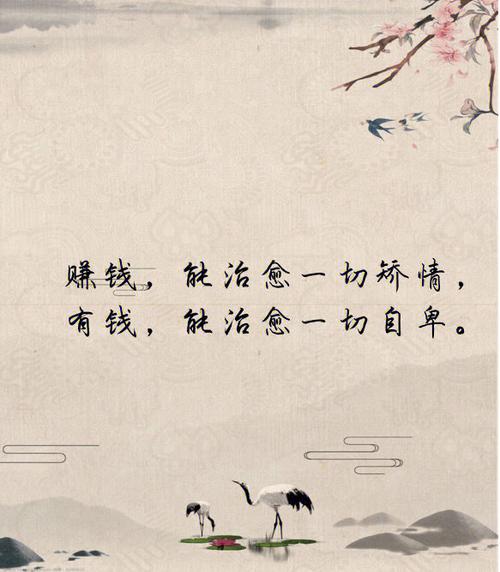 赚钱，能治愈一切矫情，
有钱，能治愈一切自卑。